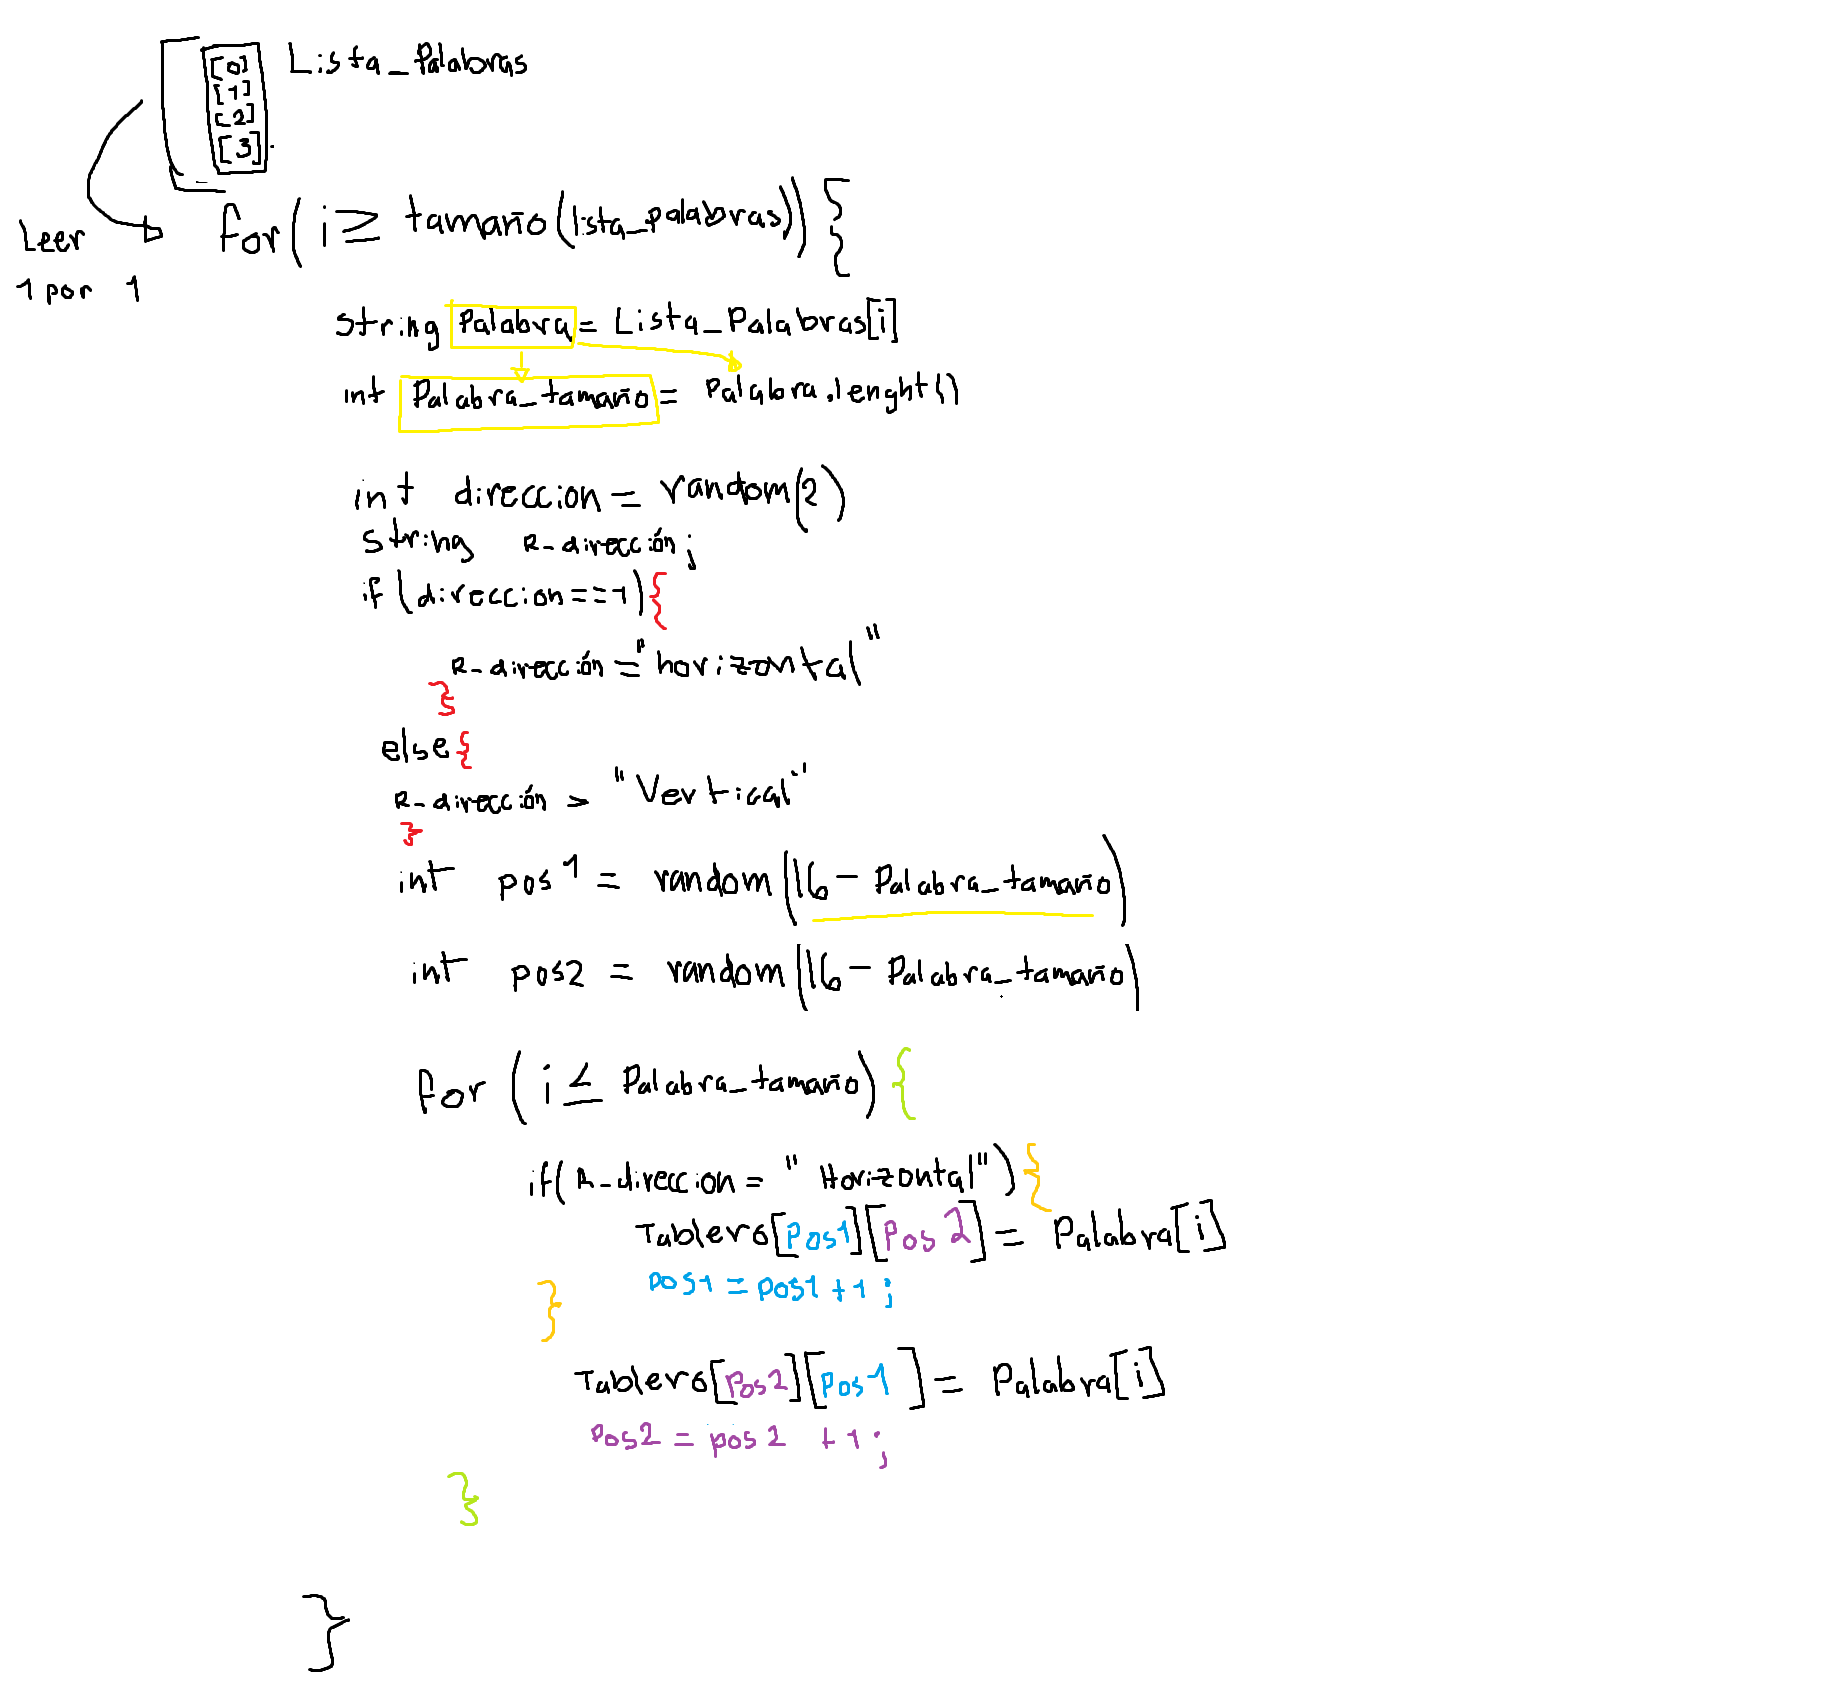 [0] Lista_Palabras
[1]
[2]
[3]
Leer
1 por 1
for(i≥ tamaño(lista_palabras)){
string Palabra = Lista_Palabras[i]
int Palabra_tamaño = Palabra.lenght()
int direccion = random(2)
string R-dirección;
if (direccion==1){
R-dirección = "horizontal"
}
else{
R-dirección > "Vertical"
}
int pos1 = random(16 - Palabra_tamaño)
int pos2 = random(16 - Palabra_tamaño)
for (i ≤ Palabra_tamaño){
if(R-direccion = "Horizontal"){
Tablero[Pos1][Pos2] = Palabra[i]
pos1 = pos1 + 1;
}
Tablero[Pos2][Pos1] = Palabra[i]
Pos2 = pos2 + 1;
}
}